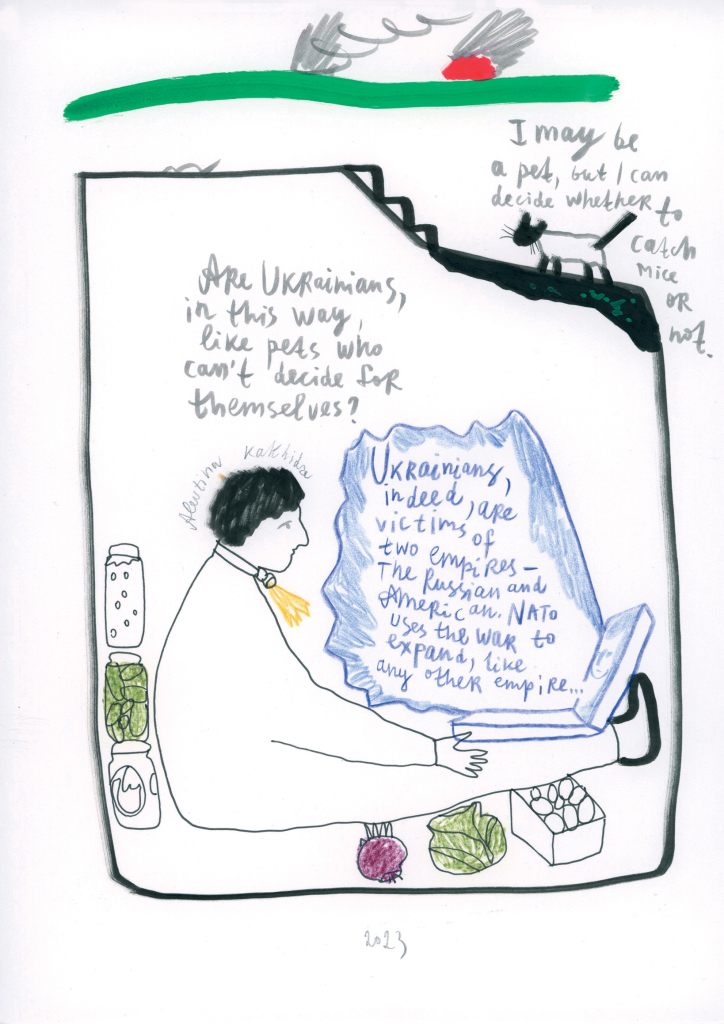 I may be
a pet, but I can
decide whether to
catch
mice
or
not.
Are Ukrainians,
in this way,
like pets who
can't decide for
themselves?
Alevtina Kakhidze
Ukrainians,
indeed, are
victims of
two empires –
The Russian and
American. NATO
uses the war to
expand, like
any other empire...
2023